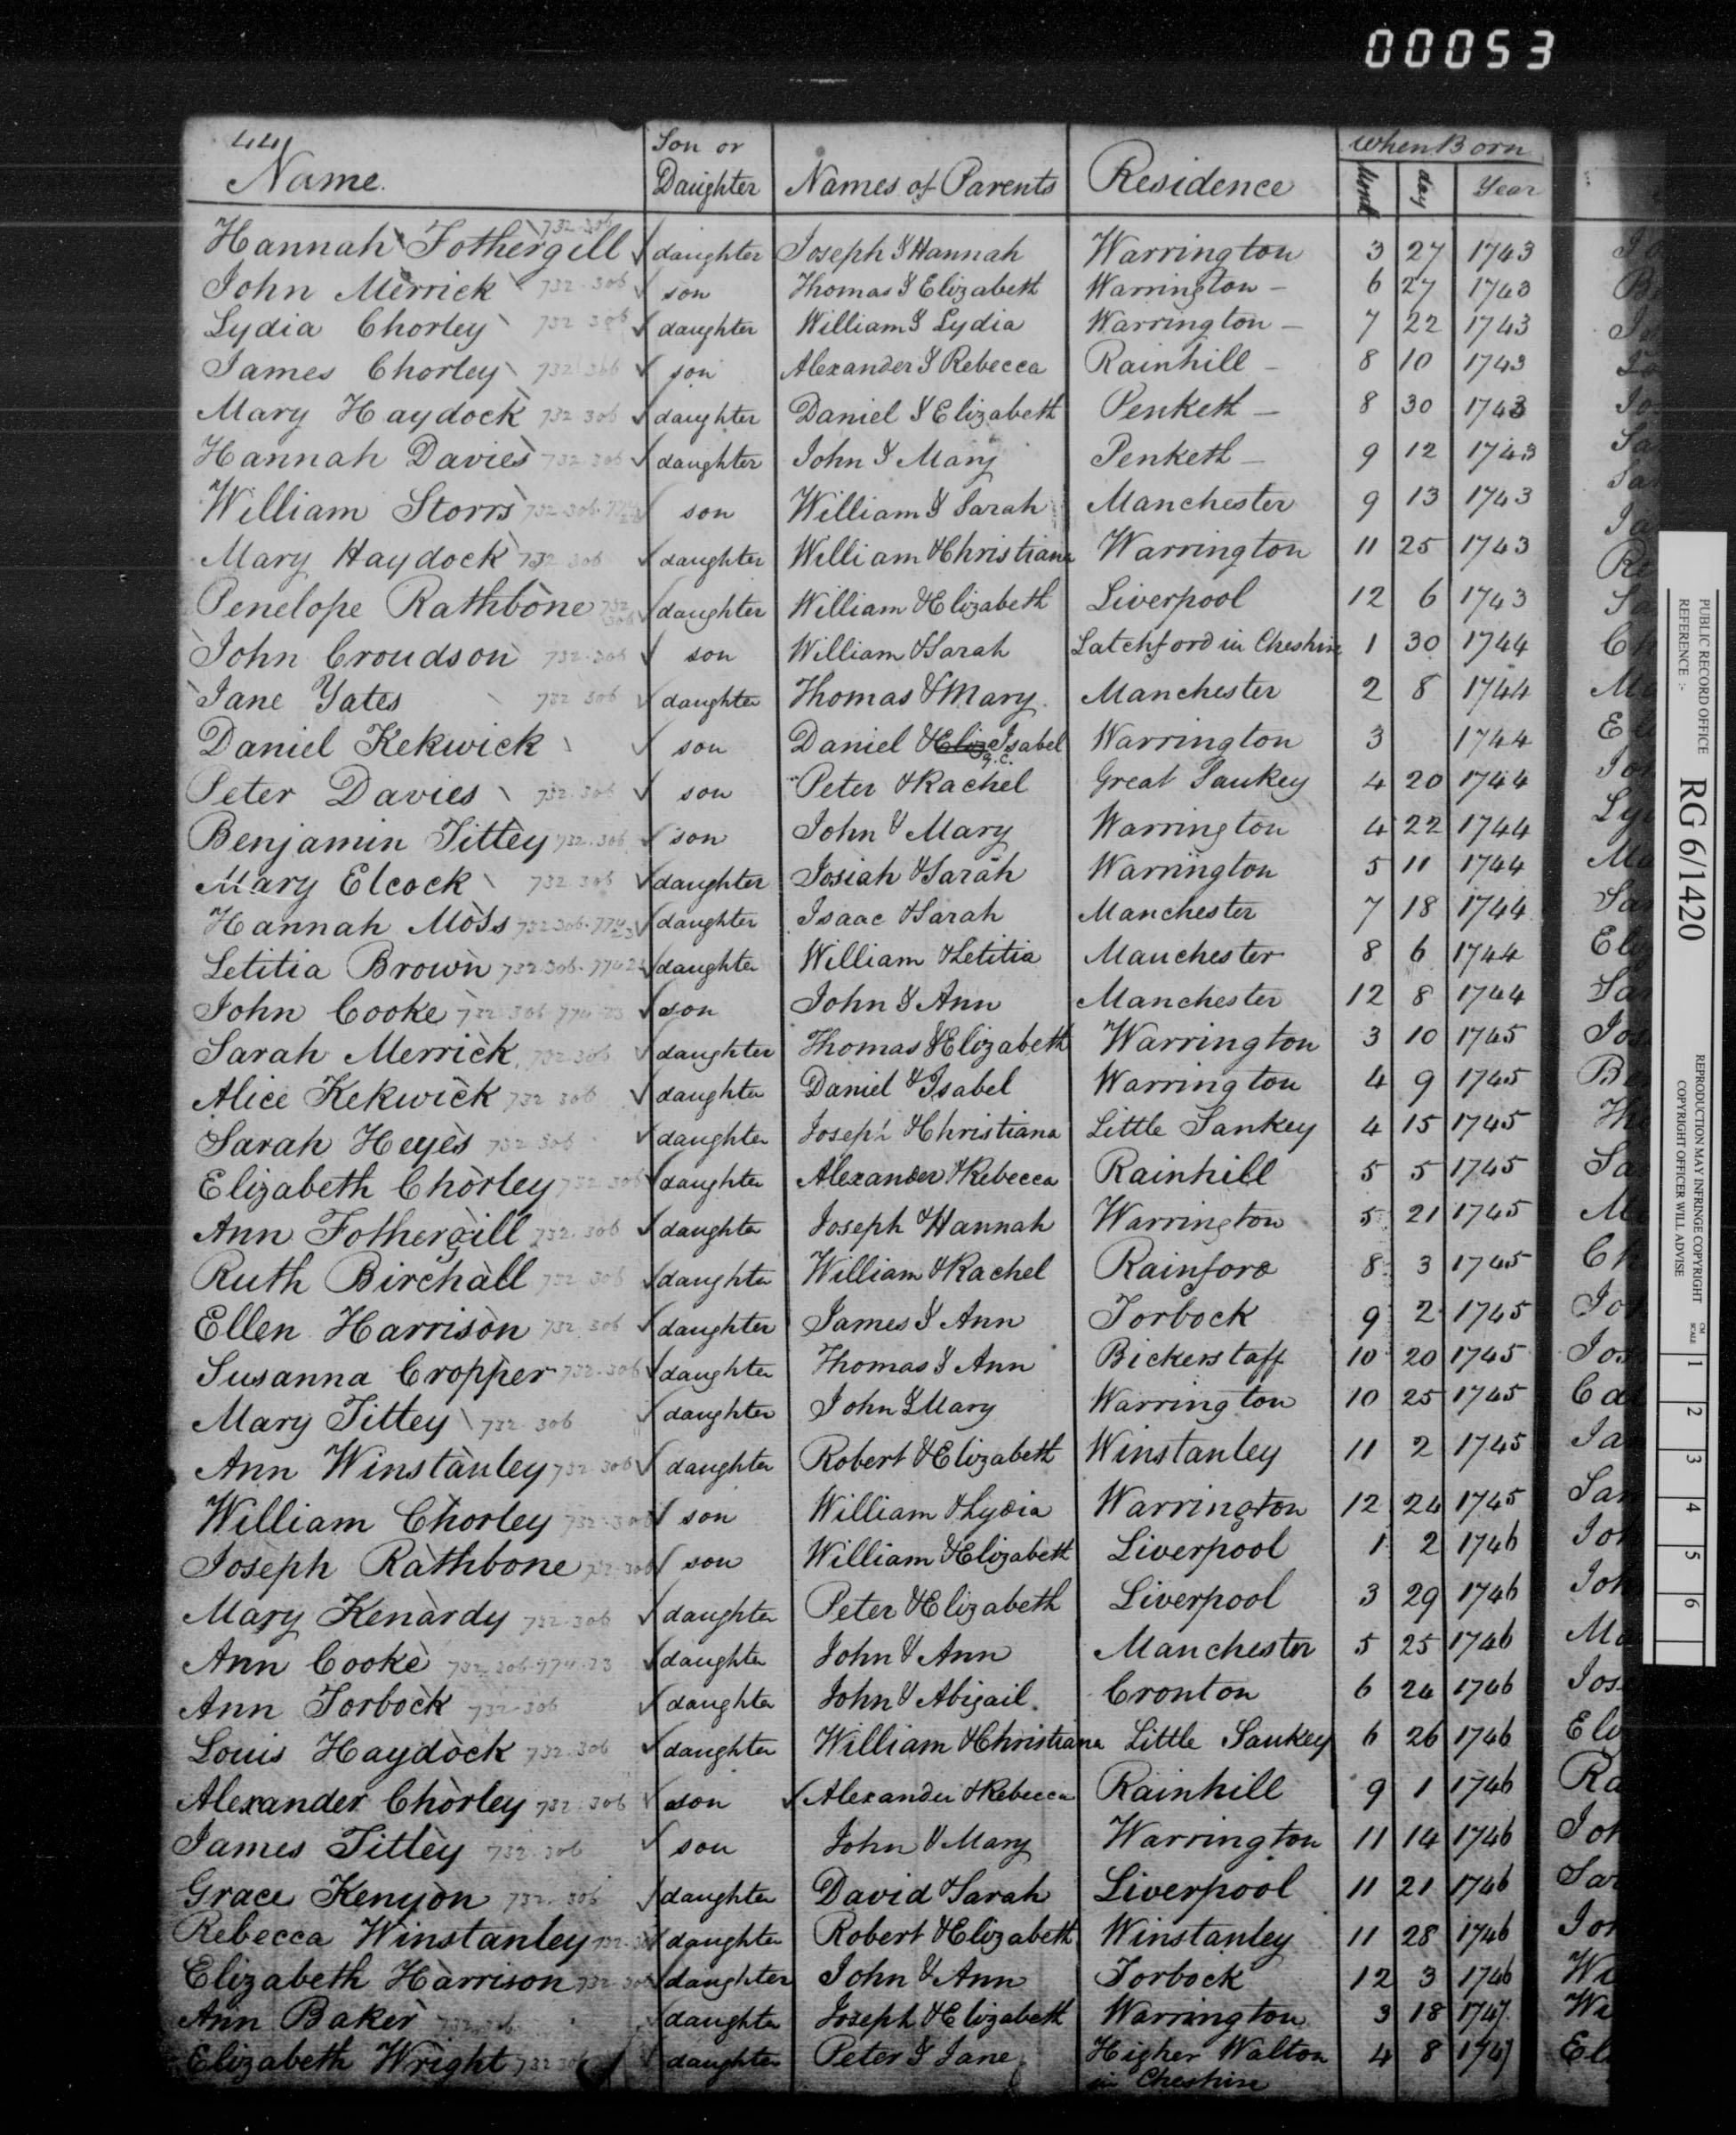 00053
44
Name. Son or Daughter Names of Parents Residence When Born Month day Year
Hannah Fothergill 732.306 daughter Joseph & Hannah Warrington 3 27 1743
John Merrick 732.306 son Thomas & Elizabeth Warrington – 6 27 1743
Lydia Chorley 732 306 daughter William & Lydia Warrington – 7 22 1743
James Chorley 732 306 son Alexander & Rebecca Rainhill – 8 10 1743
Mary Haydock 732 306 daughter Daniel & Elizabeth Penketh – 8 30 1743
Hannah Davies 732.306 daughter John & Mary Penketh – 9 12 1743
William Storrs 732.306 son William & Sarah Manchester 9 13 1743
Mary Haydock 732 306 daughter William & Christiana Warrington 11 25 1743
Penelope Rathbone 732 306 daughter William & Elizabeth Liverpool 12 6 1743
John Croudson 732.306 son William & Sarah Latchford in Cheshire 1 30 1744
Jane Yates 732 306 daughter Thomas & Mary Manchester 2 8 1744
Daniel Kekwick son Daniel & Eliza Isabel Warrington 3 1744
Peter Davies 732.306 son Peter & Rachel Great Sankey 4 20 1744
Benjamin Tittey 732.306 son John & Mary Warrington 4 22 1744
Mary Elcock 732 306 daughter Josiah & Sarah Warrington 5 11 1744
Hannah Moss 732 306.774 23 daughter Isaac & Sarah Manchester 7 18 1744
Letitia Brown 732.306.774 2 daughter William & Letitia Manchester 8 6 1744
John Cooke 732 306 774 23 son John & Ann Manchester 12 8 1744
Sarah Merrick 732.306 daughter Thomas & Elizabeth Warrington 3 10 1745
Alice Kekwick 732 306 daughter Daniel & Isabel Warrington 4 9 1745
Sarah Heyes 732 306 daughter Joseph & Christiana Little Sankey 4 15 1745
Elizabeth Chorley 732 306 daughter Alexander & Rebecca Rainhill 5 5 1745
Ann Fothergill 732.306 daughter Joseph & Hannah Warrington 5 21 1745
Ruth Birchall 732 306 daughter William & Rachel Rainford 8 3 1745
Ellen Harrison 732 306 daughter James & Ann Torbock 9 2 1745
Susanna Cropper 732.306 daughter Thomas & Ann Bickerstaff 10 20 1745
Mary Tittey 732 306 daughter John & Mary Warrington 10 25 1745
Ann Winstanley 732 306 daughter Robert & Elizabeth Winstanley 11 2 1745
William Chorley 732.306 son William & Lydia Warrington 12 24 1745
Joseph Rathbone 732.306 son William & Elizabeth Liverpool 1 2 1746
Mary Kenardy 732.306 daughter Peter & Elizabeth Liverpool 3 29 1746
Ann Cooke 732.306.774.23 daughter John & Ann Manchester 5 25 1746
Ann Torbock 732.306 daughter John & Abigail Cronton 6 24 1746
Louis Haydock 732.306 daughter William & Christiana Little Sankey 6 26 1746
Alexander Chorley 732.306 son Alexander & Rebecca Rainhill 9 1 1746
James Titley 732.306 son John & Mary Warrington 11 14 1746
Grace Kenyon 732.306 daughter David & Sarah Liverpool 11 21 1746
Rebecca Winstanley 732.306 daughter Robert & Elizabeth Winstanley 11 28 1746
Elizabeth Harrison 732.306 daughter John & Ann Torbock 12 3 1746
Ann Baker 732.306 daughter Joseph & Elizabeth Warrington 3 18 1747
Elizabeth Wright 732 306 daughter Peter & Jane Higher Walton in Cheshire 4 8 1747
PUBLIC RECORD OFFICE
REFERENCE :-
RG 6/1420
REPRODUCTION MAY INFRINGE COPYRIGHT
COPYRIGHT OFFICER WILL ADVISE
CM SCALE 1 2 3 4 5 6